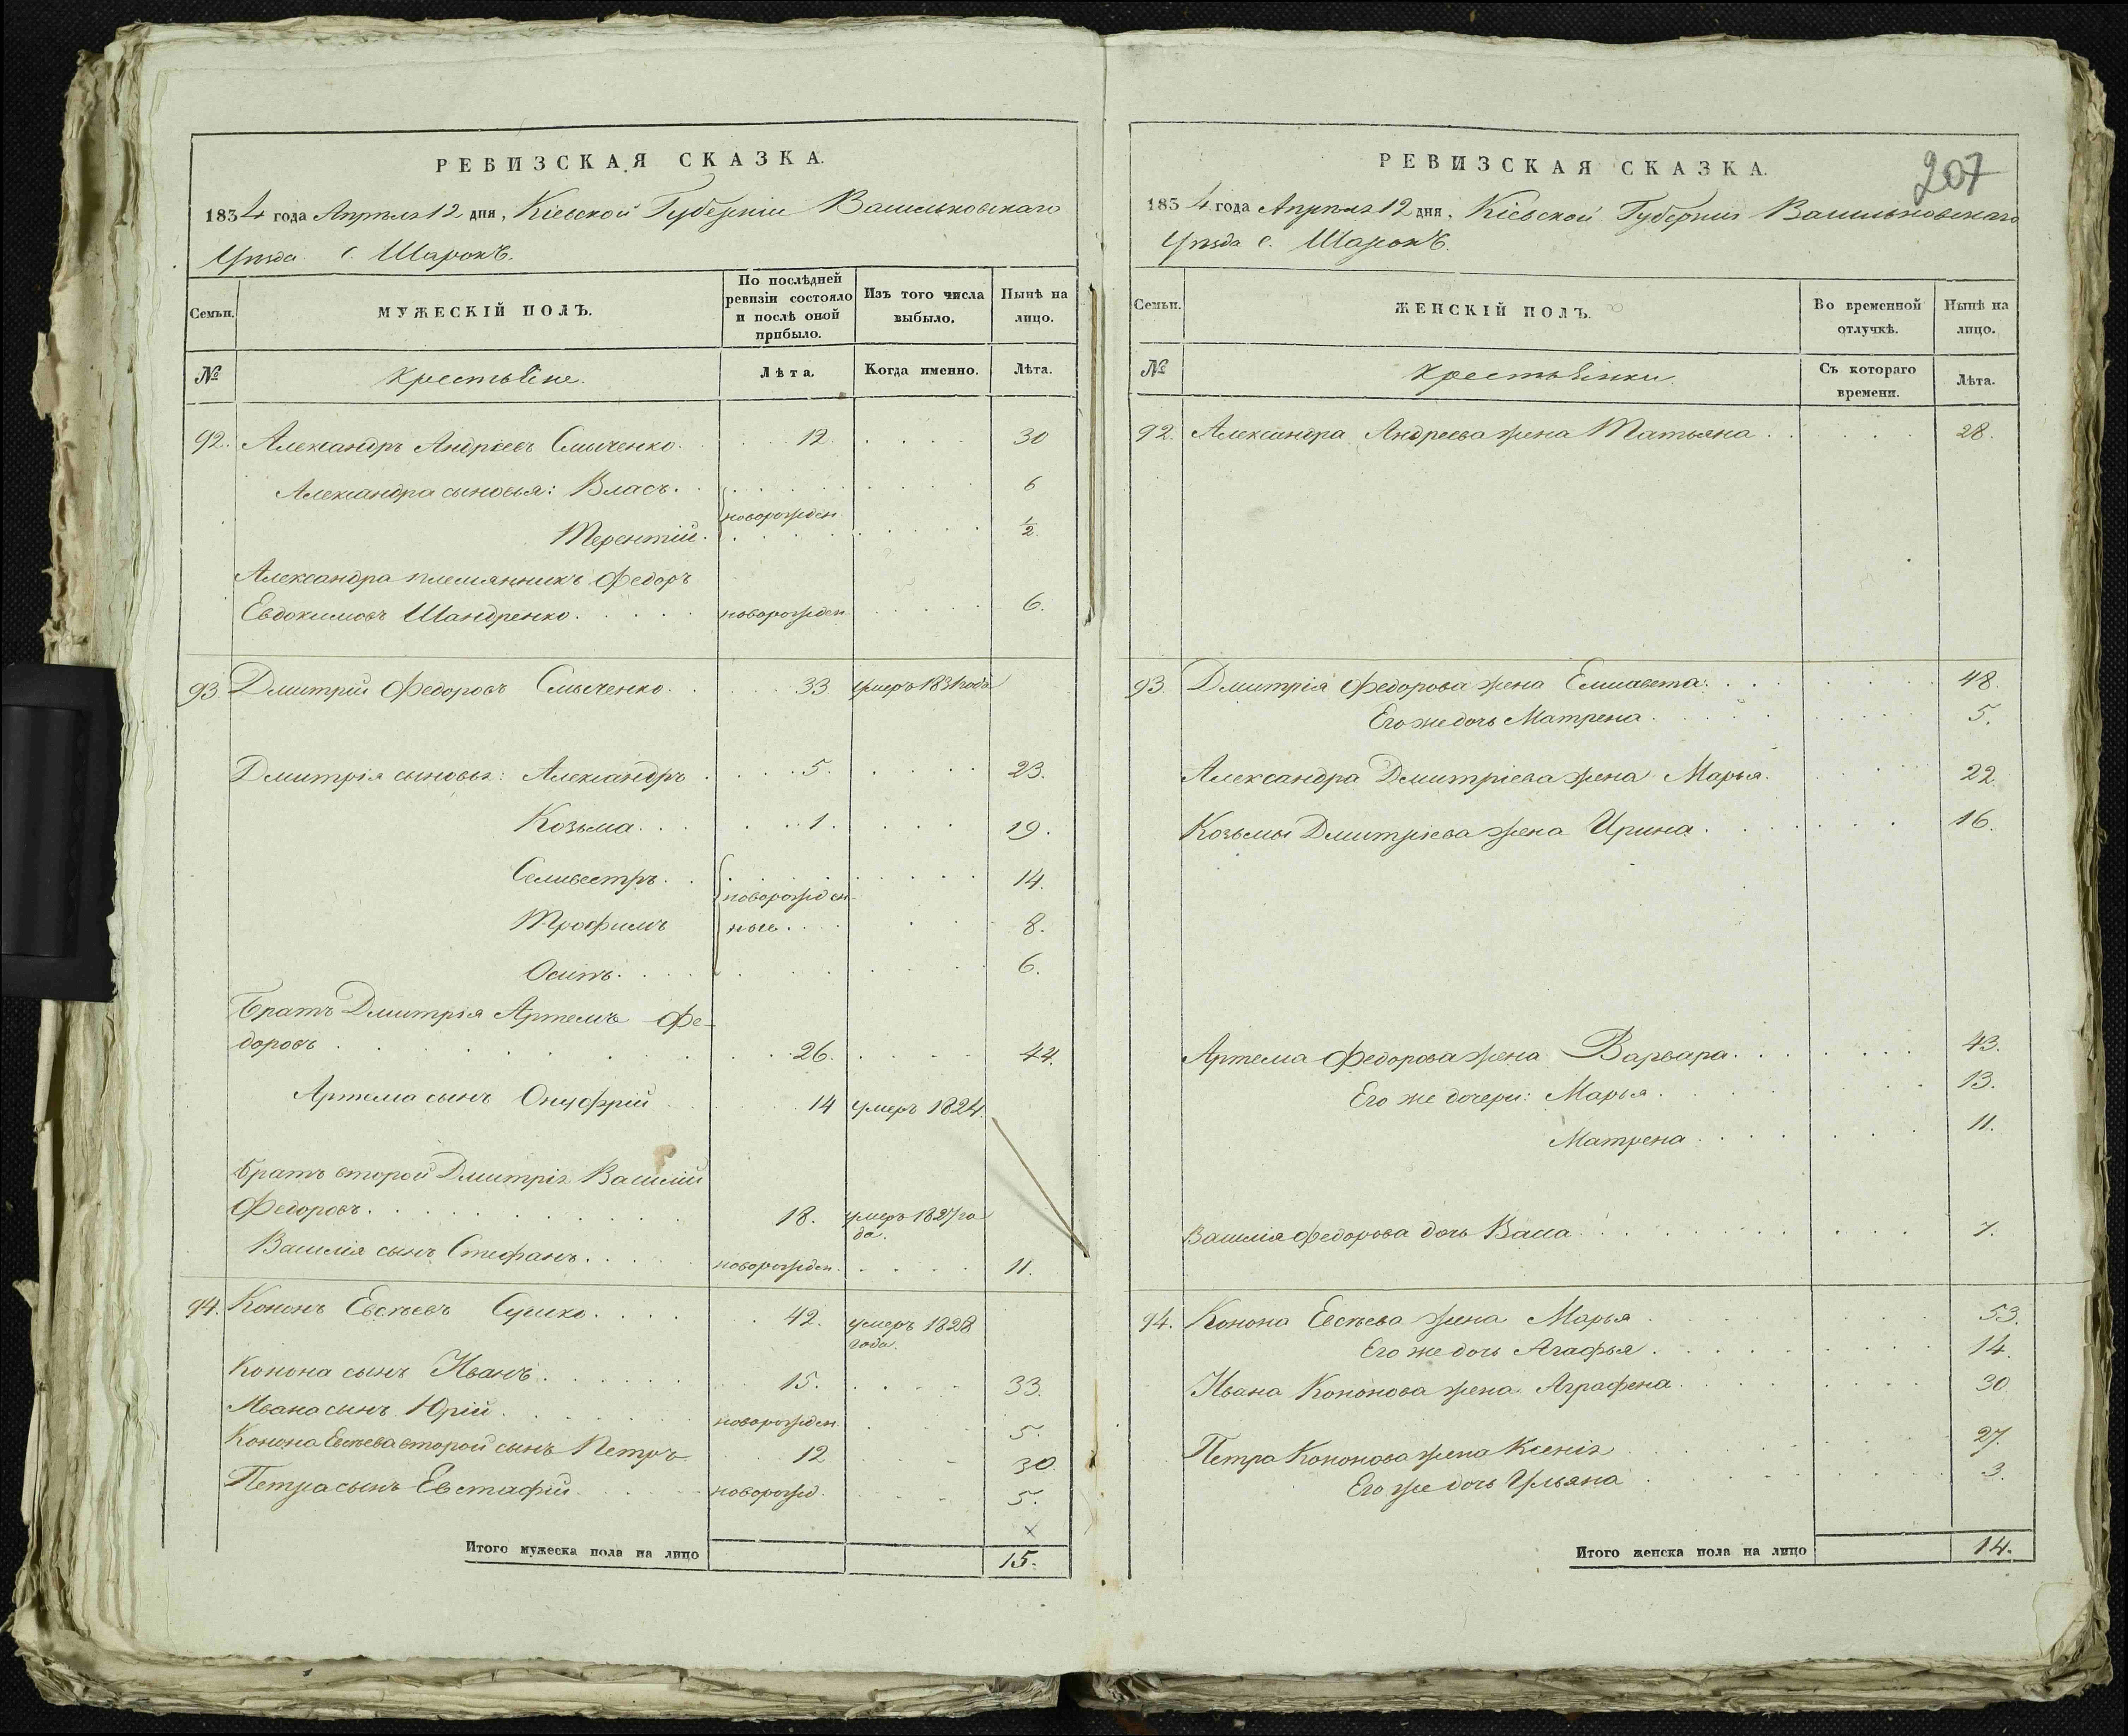 РЕВИЗСКАЯ СКАЗКА.
1834 года Апрѣля 12 дня, Кіевской Губерніи Васильковскаго
Уѣзда с. Шарокъ.
Семьи.
МУЖЕСКІЙ ПОЛЪ.
По послѣдней
ревизіи состояло
и послѣ оной
прибыло.
Изъ того числа
выбыло.
Нынѣ на
лицо.
№
Крестьяне.
Лѣта.
Когда именно.
Лѣта.
92. Александръ Андреевъ Смыченко. 12 30
Александра сыновья: Власъ. 6
новорожден
Терентій. ½
Александра племянникъ Федоръ
Евдокимовъ Шандренко. новорожден 6.
93 Дмитрій Федоровъ Смыченко. 33 умеръ 1831 года
Дмитрія сыновья: Александръ 5. 23.
Козьма. 1. 19.
Селивестръ. 14.
новорожден-
Трофимъ ные. 8.
Осипъ. 6.
Братъ Дмитрія Артемъ Фе-
доровъ 26. 44.
Артема сынъ Онуфрій 14 умеръ 1824.
Братъ второй Дмитрія Василій
Федоровъ. 18. умеръ 1827 го
да.
Василія сынъ Стефанъ. новорожден. 11.
94. Кононъ Евсѣевъ Сушко. 42. умеръ 1828
года.
Конона сынъ Иванъ. 15. 33.
Ивана сынъ Юрій. новорожден 5.
Конона Евсѣева второй сынъ Петръ 12 30.
Петра сынъ Евстафій. новорожд. 5.
Итого мужеска пола на лицо 15.
РЕВИЗСКАЯ СКАЗКА.
207
1834 года Апрѣля 12 дня, Кіевской Губерніи Васильковскаго
Уѣзда с. Шарокъ.
Семьи.
ЖЕНСКІЙ ПОЛЪ.
Во временной
отлучкѣ.
Нынѣ на
лицо.
№
Крестьянки.
Съ котораго
времени.
Лѣта.
92. Александра Андреева жена Татьяна. 28.
93. Дмитрія Федорова жена Елисавета. 48.
Его же дочь Матрена. 5.
Александра Дмитріева жена Марья. 22.
Козьмы Дмитріева жена Ирина. 16.
Артема Федорова жена Варвара. 43.
Его же дочери: Марья. 13.
Матрена. 11.
Василія Федорова дочь Васса 7.
94. Конона Евсѣева жена Марья 53.
Его же дочь Агафья. 14.
Ивана Кононова жена Аграфена. 30
Петра Кононова жена Ксенія 27.
Его же дочь Ульяна 3.
Итого женска пола на лицо 14.